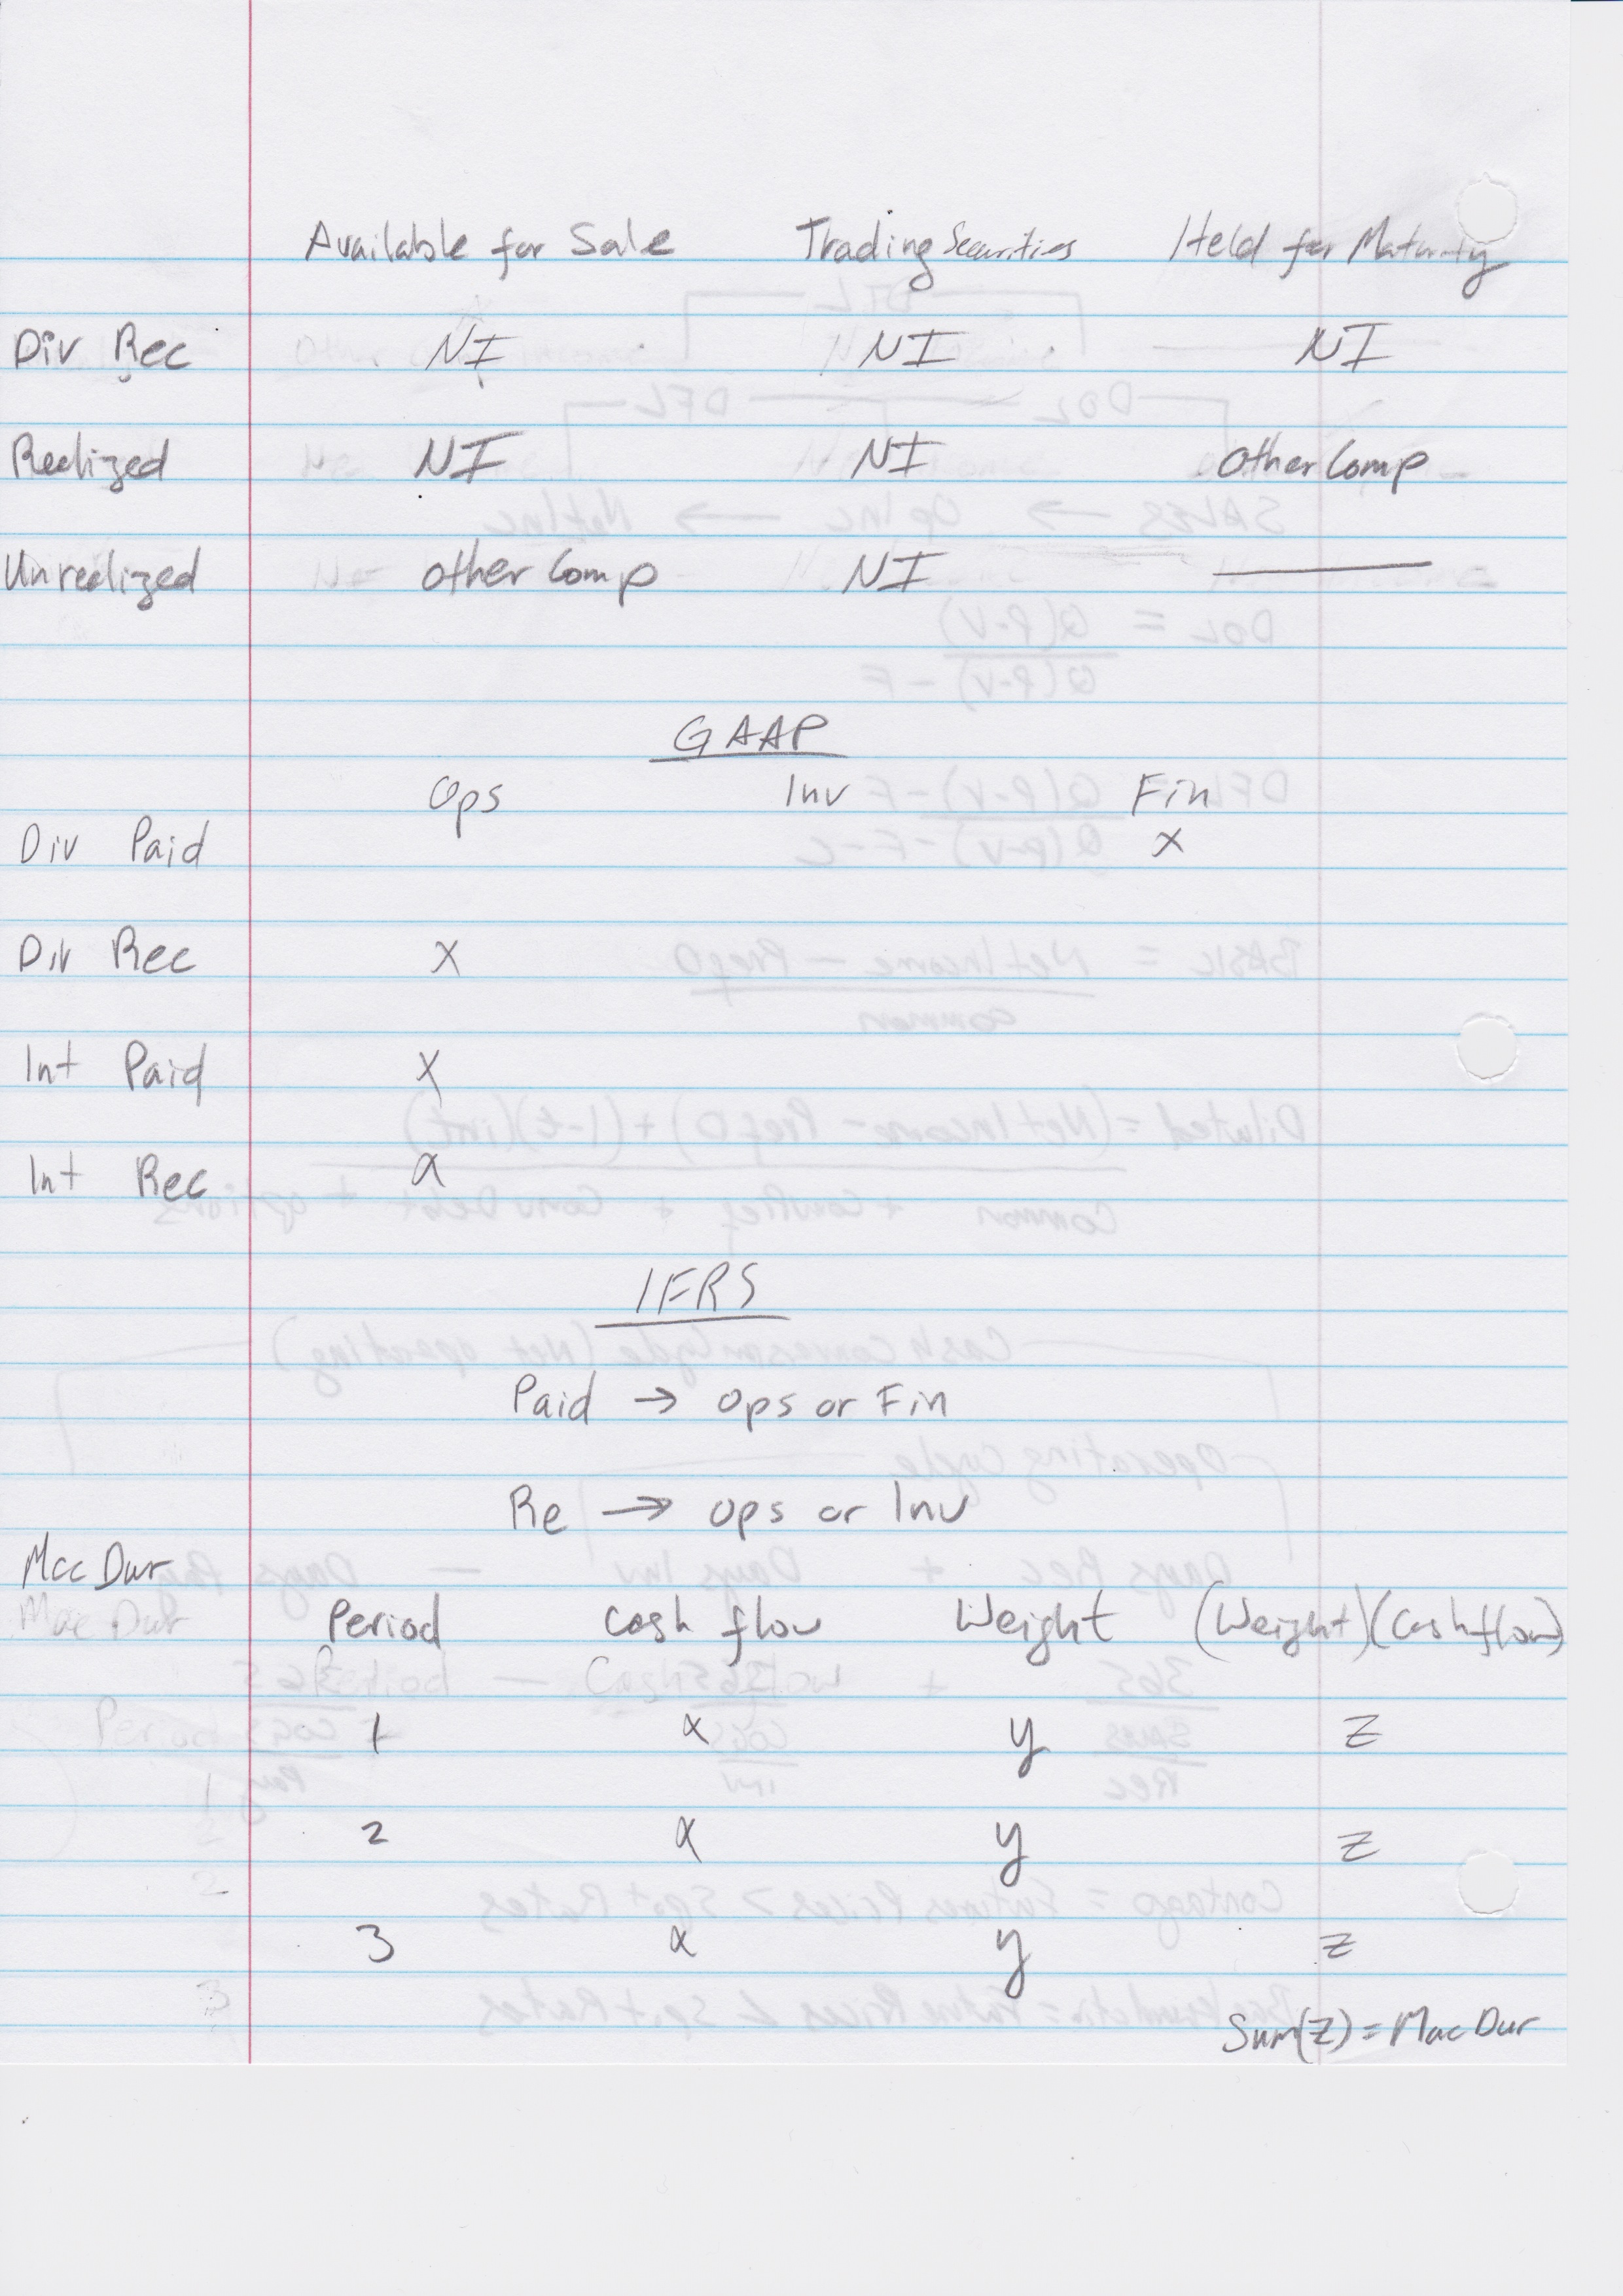 Available for Sale Trading Securities Held for Maturity
Div Rec NI NI NI
Realized NI NI Other Comp
Unrealized Other Comp NI —
GAAP
Ops Inv Fin
Div Paid x
Div Rec x
Int Paid x
Int Rec x
IFRS
Paid → Ops or Fin
Re → Ops or Inv
Mac Dur
Mac Dur
Period Cash flow Weight (Weight)(Cashflow)
1 x y z
2 x y z
3 x y z
Sum(z) = Mac Dur